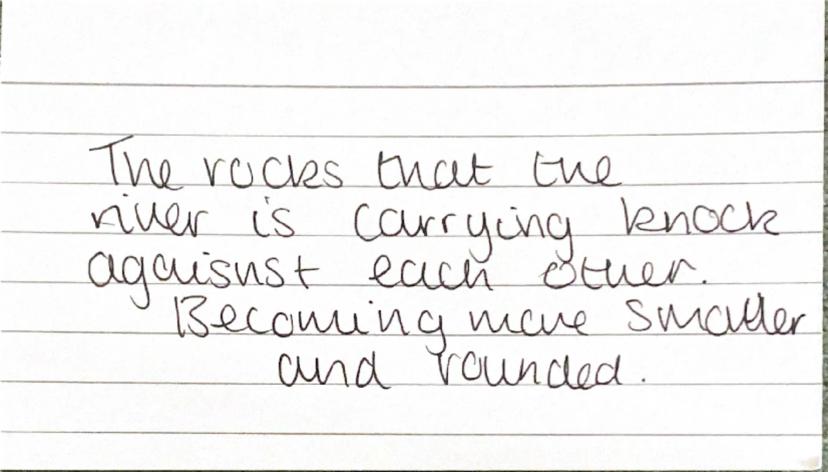 The rocks that the
river is carrying knock
agaisnst each other.
Becoming more smaller
and rounded.